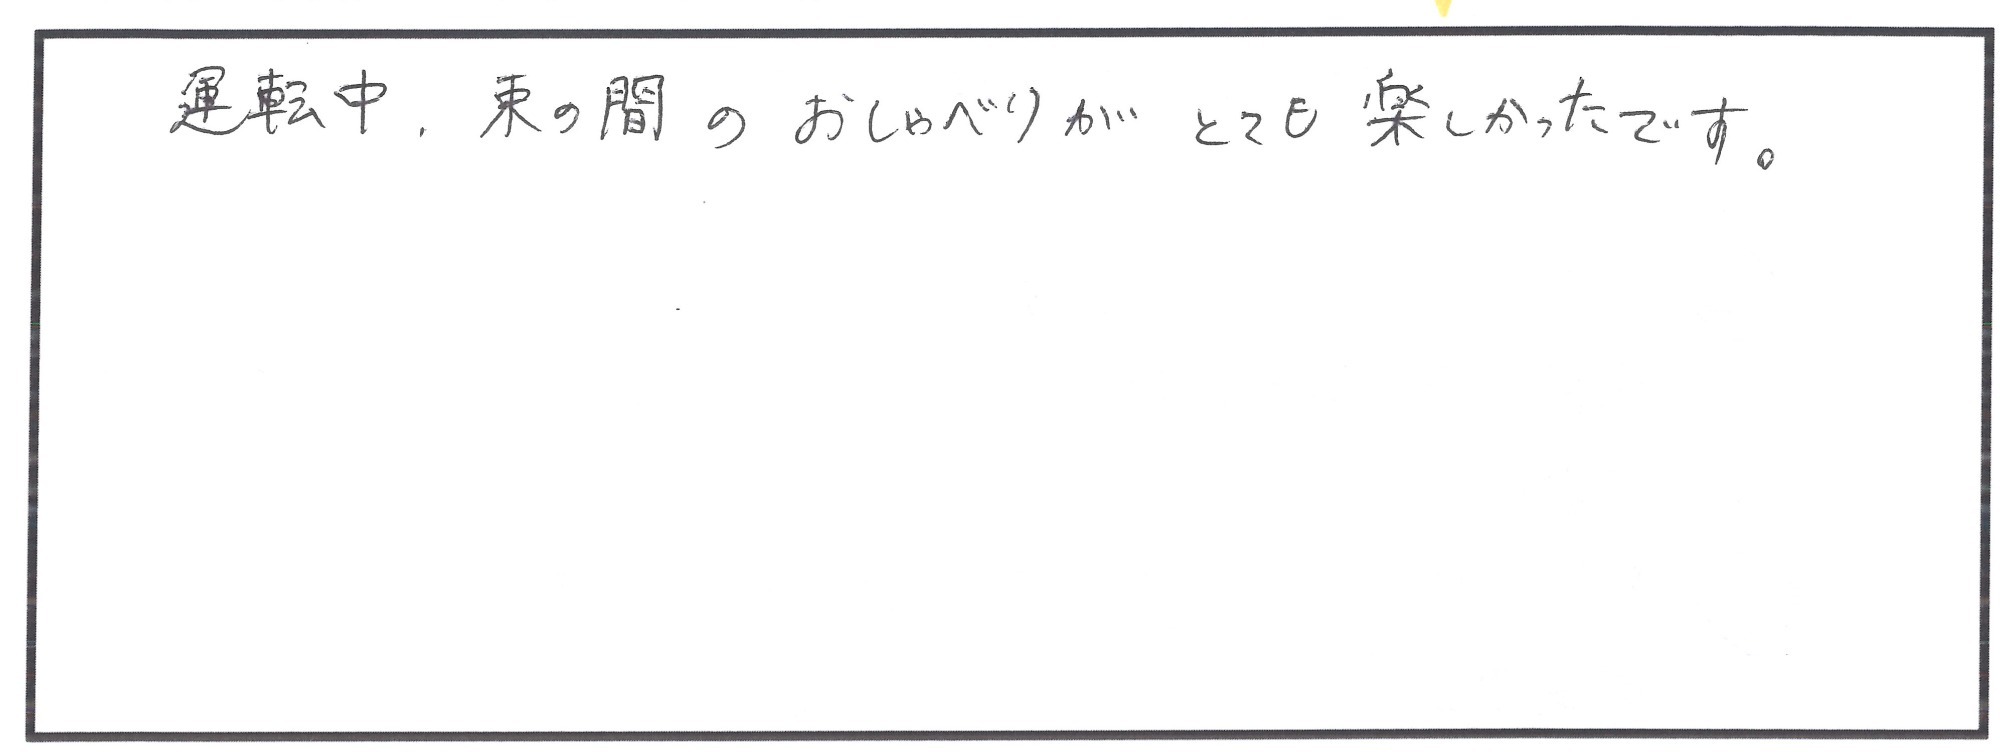 運転中、束の間のおしゃべりがとても楽しかったです。